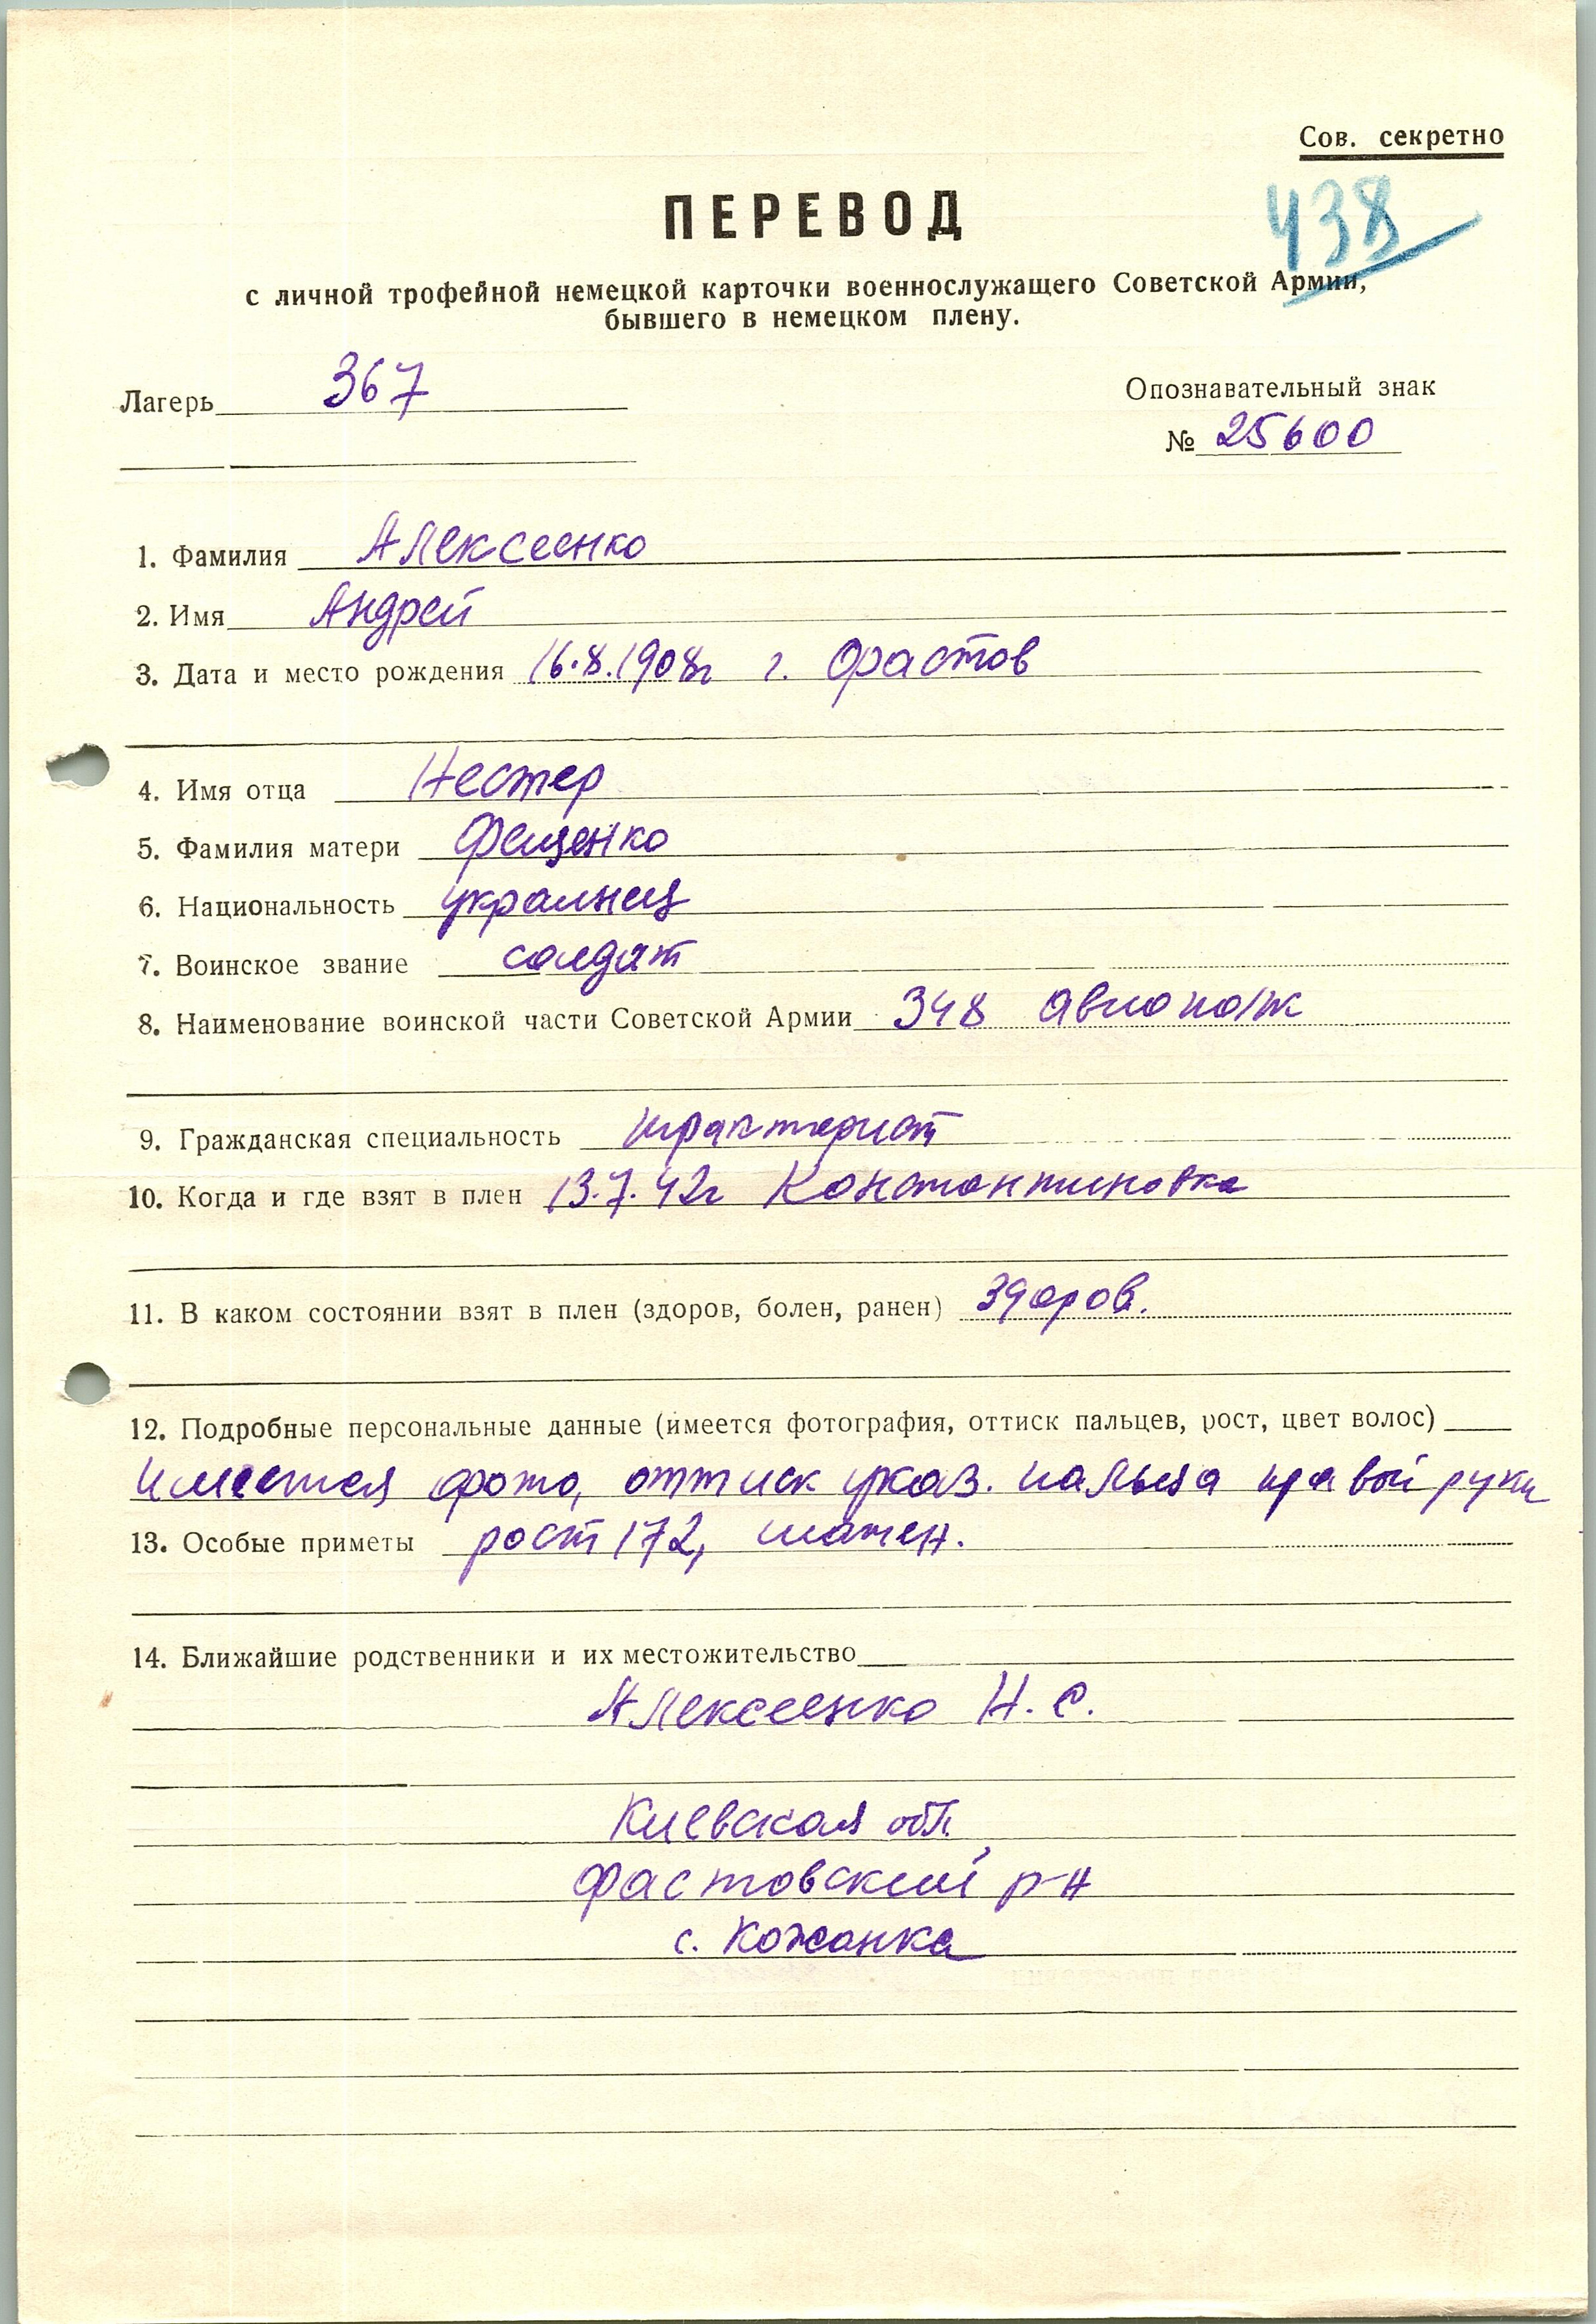 Сов. секретно
438
ПЕРЕВОД
с личной трофейной немецкой карточки военнослужащего Советской Армии,
бывшего в немецком плену.
Лагерь 367
Опознавательный знак
№ 25600
1. Фамилия Алексеенко
2. Имя Андрей
3. Дата и место рождения 16.8.1908г г. Фрастов
4. Имя отца Нестер
5. Фамилия матери Фещенко
6. Национальность украинец
7. Воинское звание солдат
8. Наименование воинской части Советской Армии 348 авиополк
9. Гражданская специальность трактерист
10. Когда и где взят в плен 13.7.42г Константиновка
11. В каком состоянии взят в плен (здоров, болен, ранен) здоров.
12. Подробные персональные данные (имеется фотография, оттиск пальцев, рост, цвет волос)
имеется фото, оттиск указ. пальца правой руки
13. Особые приметы рост 172, шатен.
14. Ближайшие родственники и их местожительство
Алексеенко Н. С.
Киевская обл.
Фастовский р-н
с. Кожанка